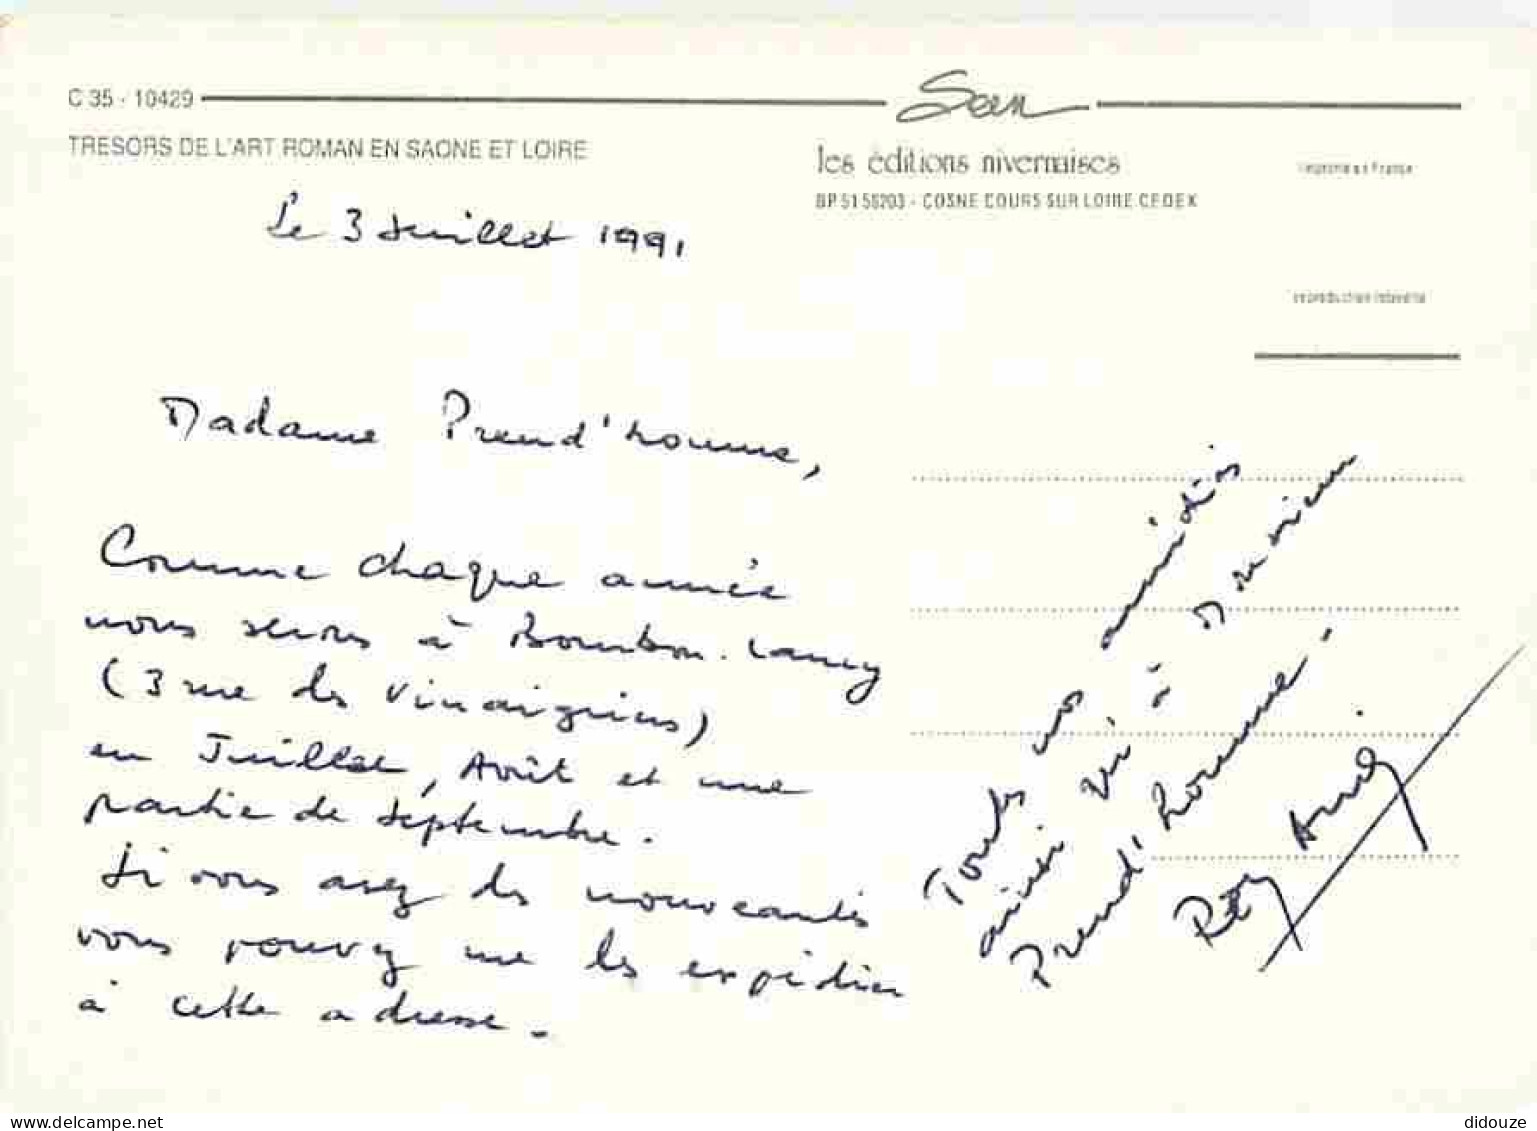 C 35 - 10429
Sean
TRESORS DE L'ART ROMAN EN SAONE ET LOIRE
les éditions nivernaises
BP 51 58203 - COSNE COURS SUR LOIRE CEDEX
Imprimé en France
reproduction interdite
Le 3 Juillet 1991
Madame Prend'homme,
Comme chaque année
nous serons à Bourbon-Lancy
(3 rue des Vinaigriers)
en Juillet, Août et une
partie de Septembre.
Si vous avez des nouveautés
vous pouvez me les expédier
à cette adresse.
Toutes nos amitiés
ainsi qu'à Monsieur
Prend'homme.
delcampe.net
didouze